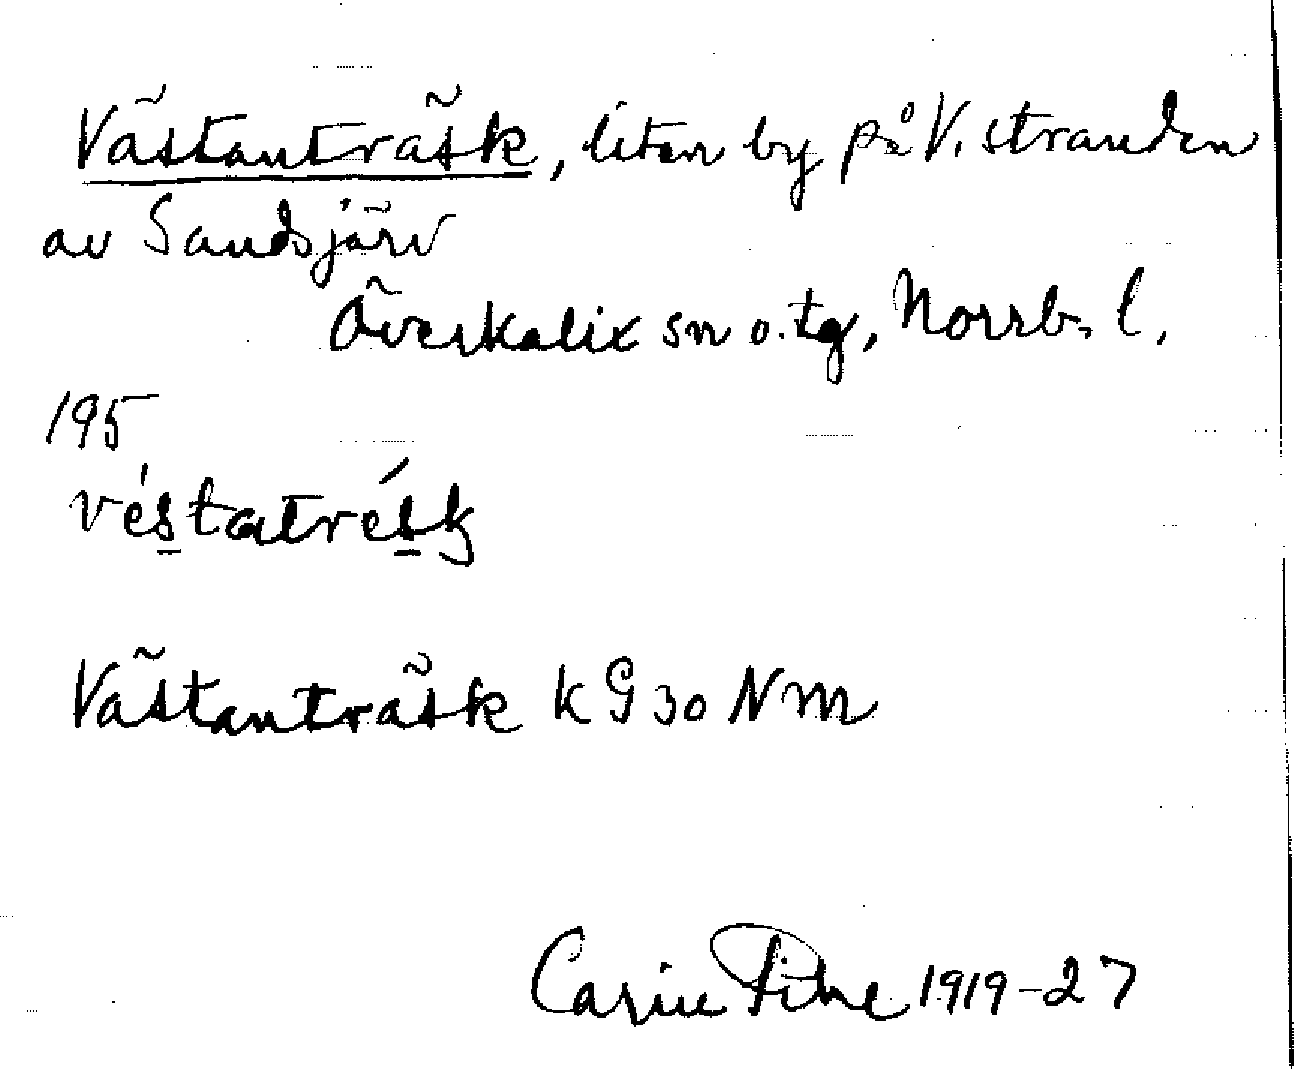 Västanträsk, liten by på V. stranden
av Sandsjärv
Överkalix sn o. tg, Norrb. l.
195
véstatrésk
Västanträsk k G 30 NM
Carin Pihl 1919-27